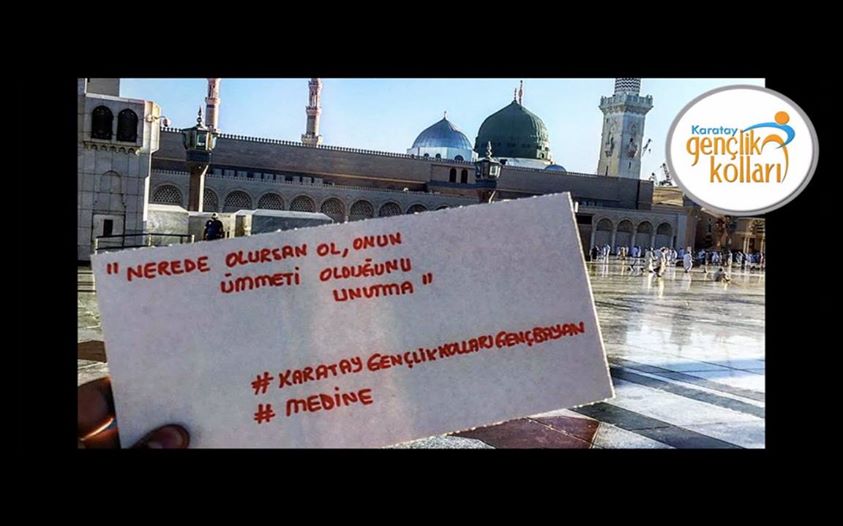 Karatay
gençlik
kolları
" NEREDE OLURSAN OL, ONUN
ÜMMETİ OLDUĞUNU
UNUTMA "
# KARATAY GENÇLİK KOLLARI GENÇBAYAN
# MEDİNE